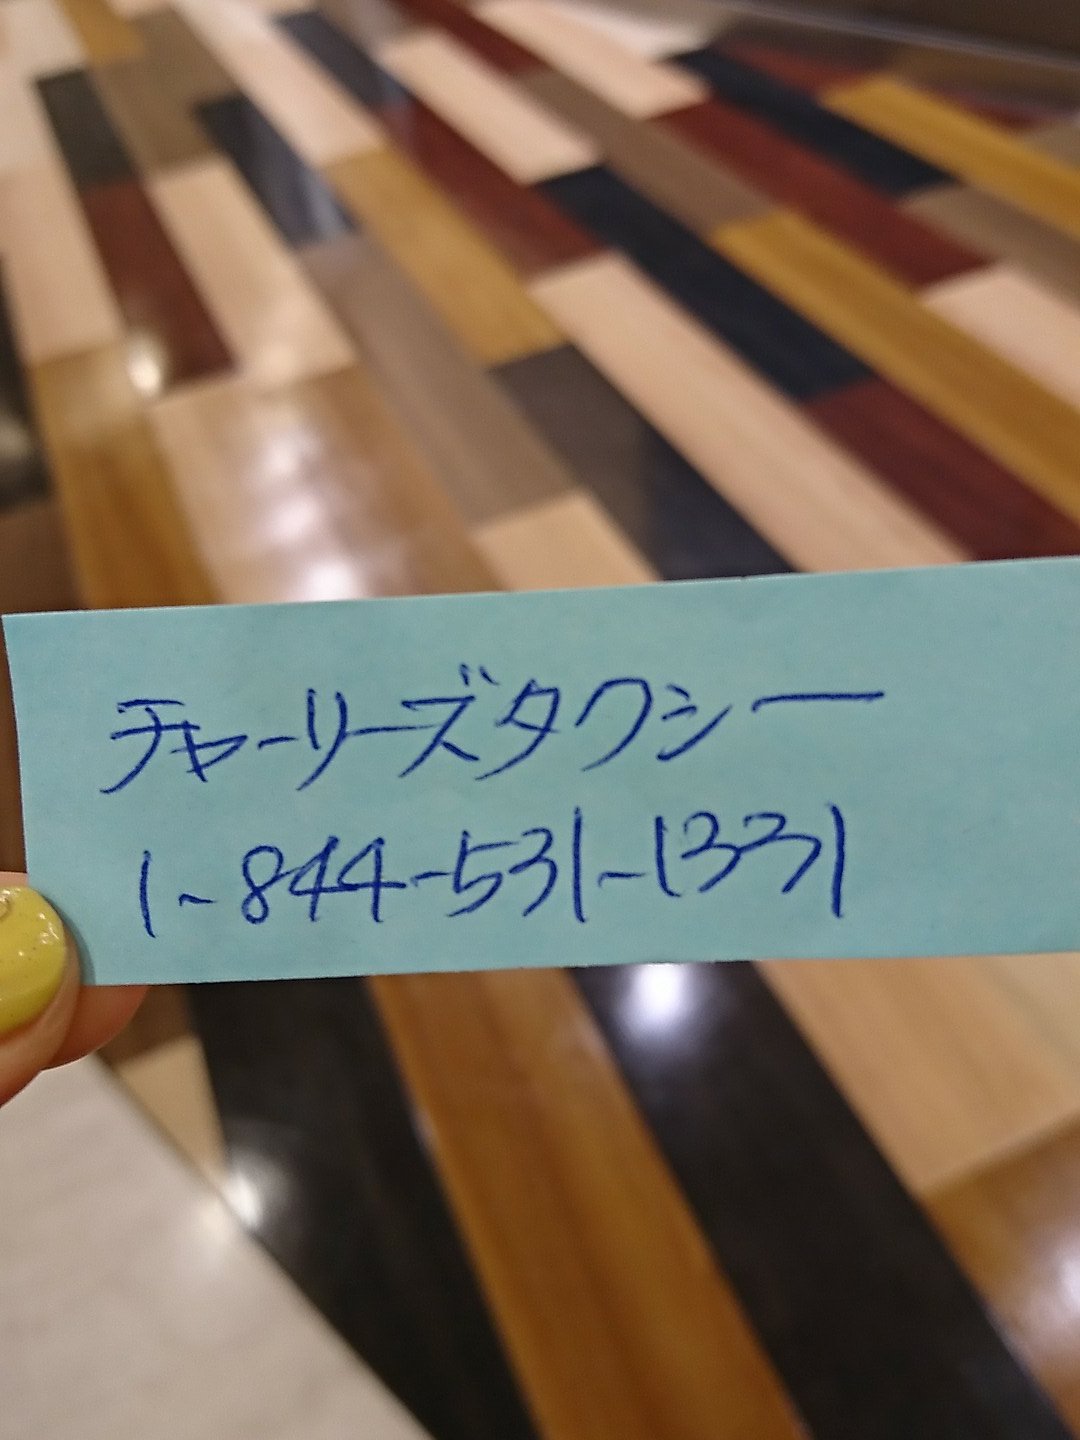 チャーリーズタクシー
1-844-531-1331